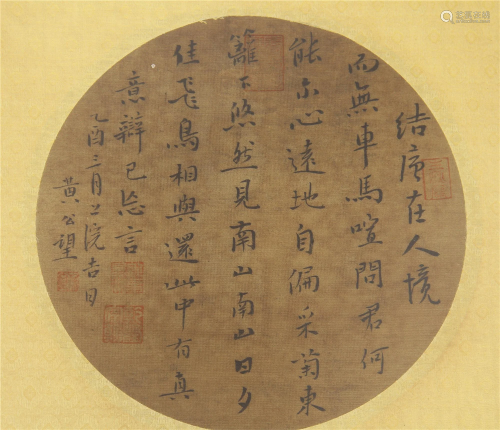 结庐在人境
而無車馬喧問君何
能尔心遠地自偏采菊東
籬下悠然見南山南山日夕
佳飛鳥相與還此中有真
意辯已忘言
乙酉三月上浣吉日
黄公望